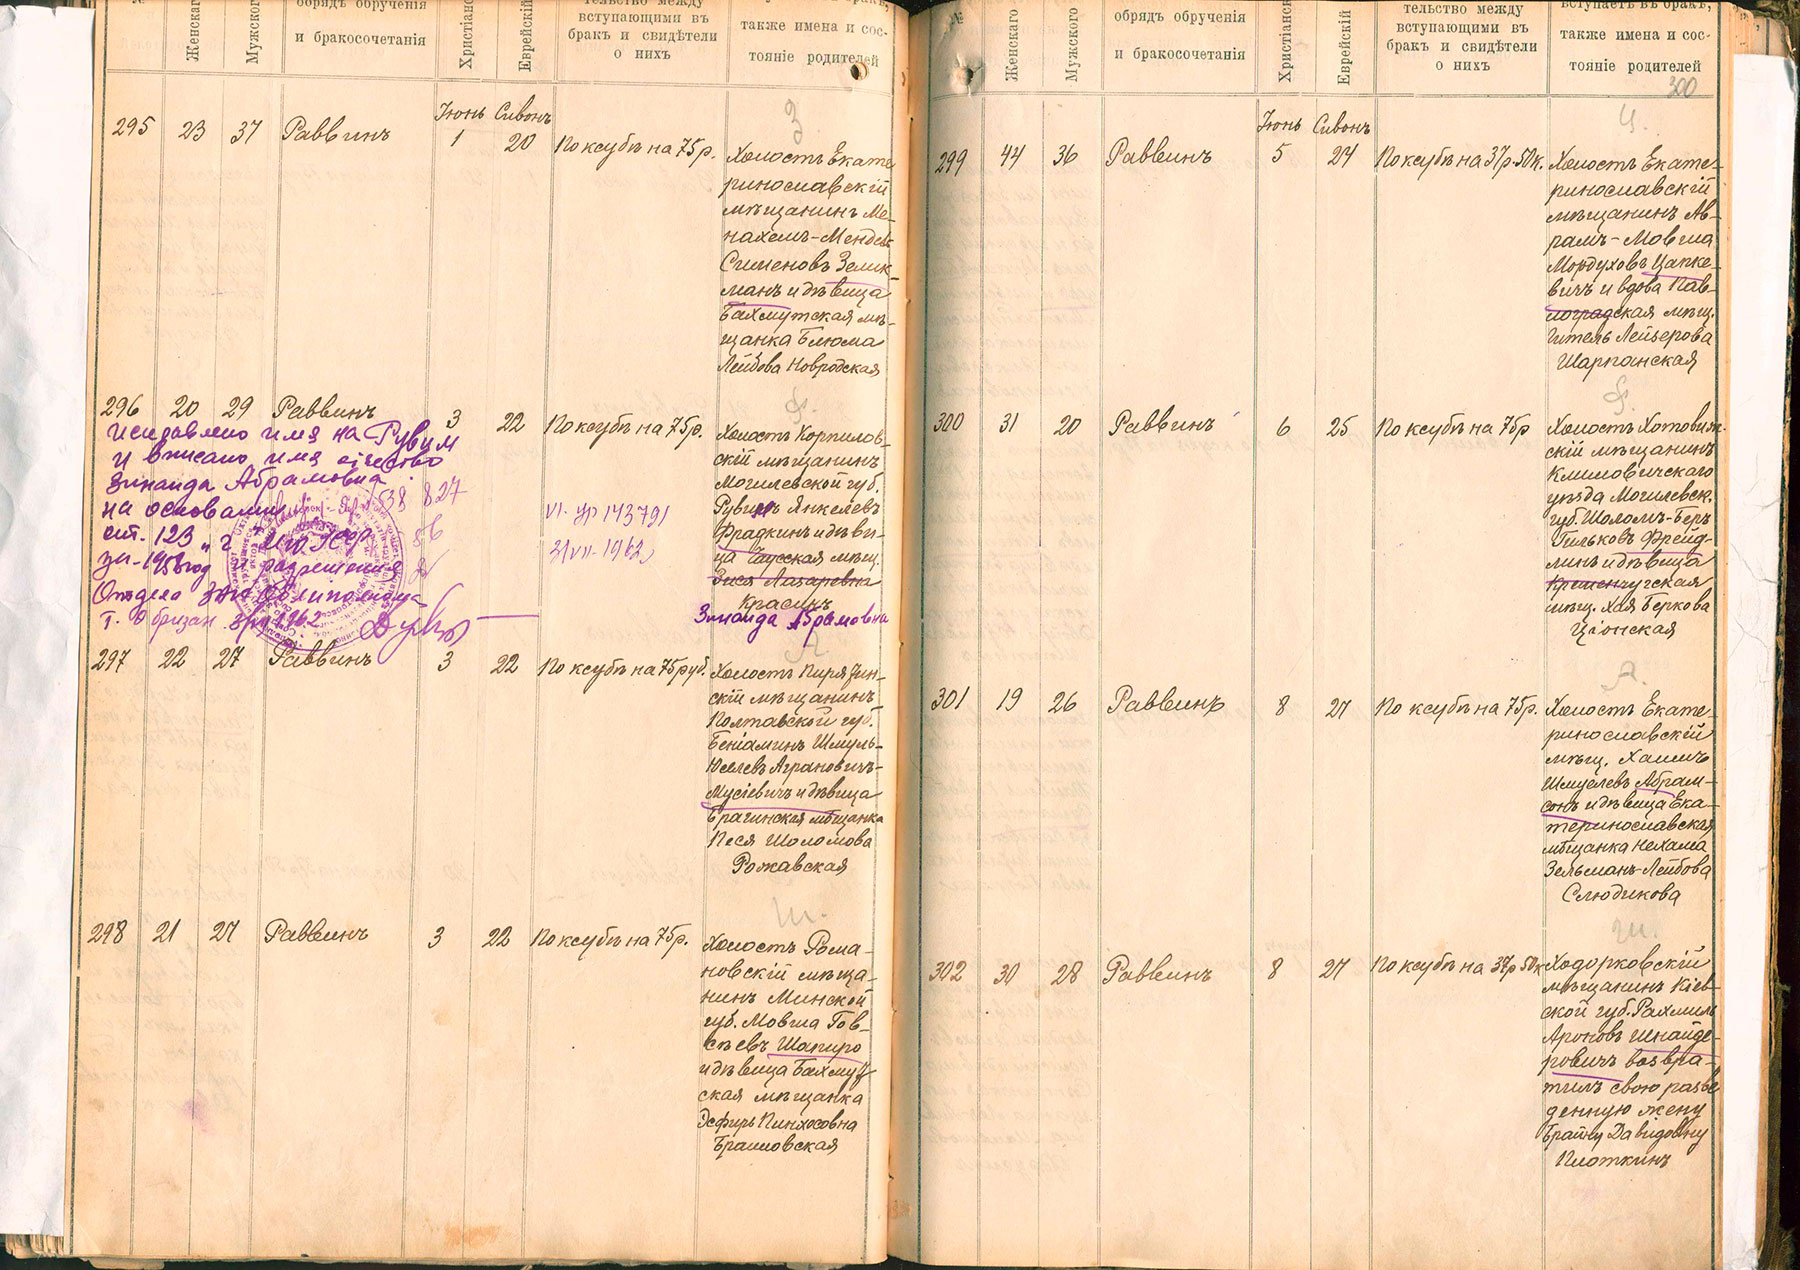 №
Женскаго
Мужского
обрядъ обрученія
и бракосочетанія
Христіанск
Еврейскій
тельство между
вступающими въ
бракъ и свидѣтели
о нихъ
также имена и сос-
тояніе родителей
Іюнь Сивонъ
З
295 23 37 Раввинъ 1 20 По ксубѣ на 75р.
Холостъ Екате
ринославскій
мѣщанинъ Ме-
нахемъ-Мендель
Сименовъ Зелик-
манъ и дѣвица
Бахмутская мѣ-
щанка Блюма
Лейбова Новродская
Ф.
296 20 29 Раввинъ 3 22 По ксубѣ на 75р.
исправлено имя на Рувим
и вписано имя отчество
Зинаида Абрамовна
на основании
ст. 123
разрешения
Отдела
1962
VI-яр 143791
31 VII-1962
Холостъ Корпилов-
скій мѣщанинъ
Могилевской губ.
Рувинъ Янкелевъ
Фрадкинъ и дѣви-
ца Чусская мѣщ.
Зися Лазаревна
Красинъ
Зинаида Абрамовна
Л
297 22 27 Раввинъ 3 22 По ксубѣ на 75руб.
Холостъ Пирятин-
скій мѣщанинъ
Полтавской губ.
Беніаминъ Шмуль-
Іоселевъ Аграновичъ-
Мусіевичъ и дѣвица
Брагинская мѣщанка
Песя Шоломова
Рожавская
Ш.
298 21 27 Раввинъ 3 22 По ксубѣ на 75р.
Холостъ Рома-
новскій мѣща-
нинъ Минской
губ. Мовша Гов-
сѣевъ Шапиро
и дѣвица Бахмут
ская мѣщанка
Эсфирь Пинхосовна
Браиловская
№
Женскаго
Мужского
обрядъ обрученія
и бракосочетанія
Христіанск
Еврейскій
тельство между
вступающими въ
бракъ и свидѣтели
о нихъ
вступаетъ въ бракъ,
также имена и сос-
тояніе родителей
300
Іюнь Сивонъ
Ц.
299 44 36 Раввинъ 5 24 По ксубѣ на 37р.50к.
Холостъ Екате-
ринославскій
мѣщанинъ Ав-
рамъ-Мовша
Мордуховъ Цапке-
вичъ и вдова Пав-
лоградская мѣщ.
Гитель Лейзерова
Шарпанская
Ф.
300 31 20 Раввинъ 6 25 По ксубѣ на 75р
Холостъ Хотовиж-
скій мѣщанинъ
Климовичскаго
уѣзда Могилевск.
губ. Шоломъ-Беръ
Гильковъ Фрейд-
линъ и дѣвица
Кременчугская
мѣщ. Хая Беркова
Ціонская
А.
301 19 26 Раввинъ 8 27 По ксубѣ на 75р.
Холостъ Екате-
ринославскій
мѣщ. Хаимъ
Шмуелевъ Абрам-
сонъ и дѣвица Ека-
теринославская
мѣщанка Нехама
Зельманъ-Лейбова
Слюдикова
Ш.
302 30 28 Раввинъ 8 27 По ксубѣ на 37р50к
Ходорковскій
мѣщанинъ Кіев-
ской губ. Рахмиль
Ароновъ Шнайде-
ровичъ возвра-
тилъ свою разве
денную жену
Брайну Давидовну
Плоткинъ